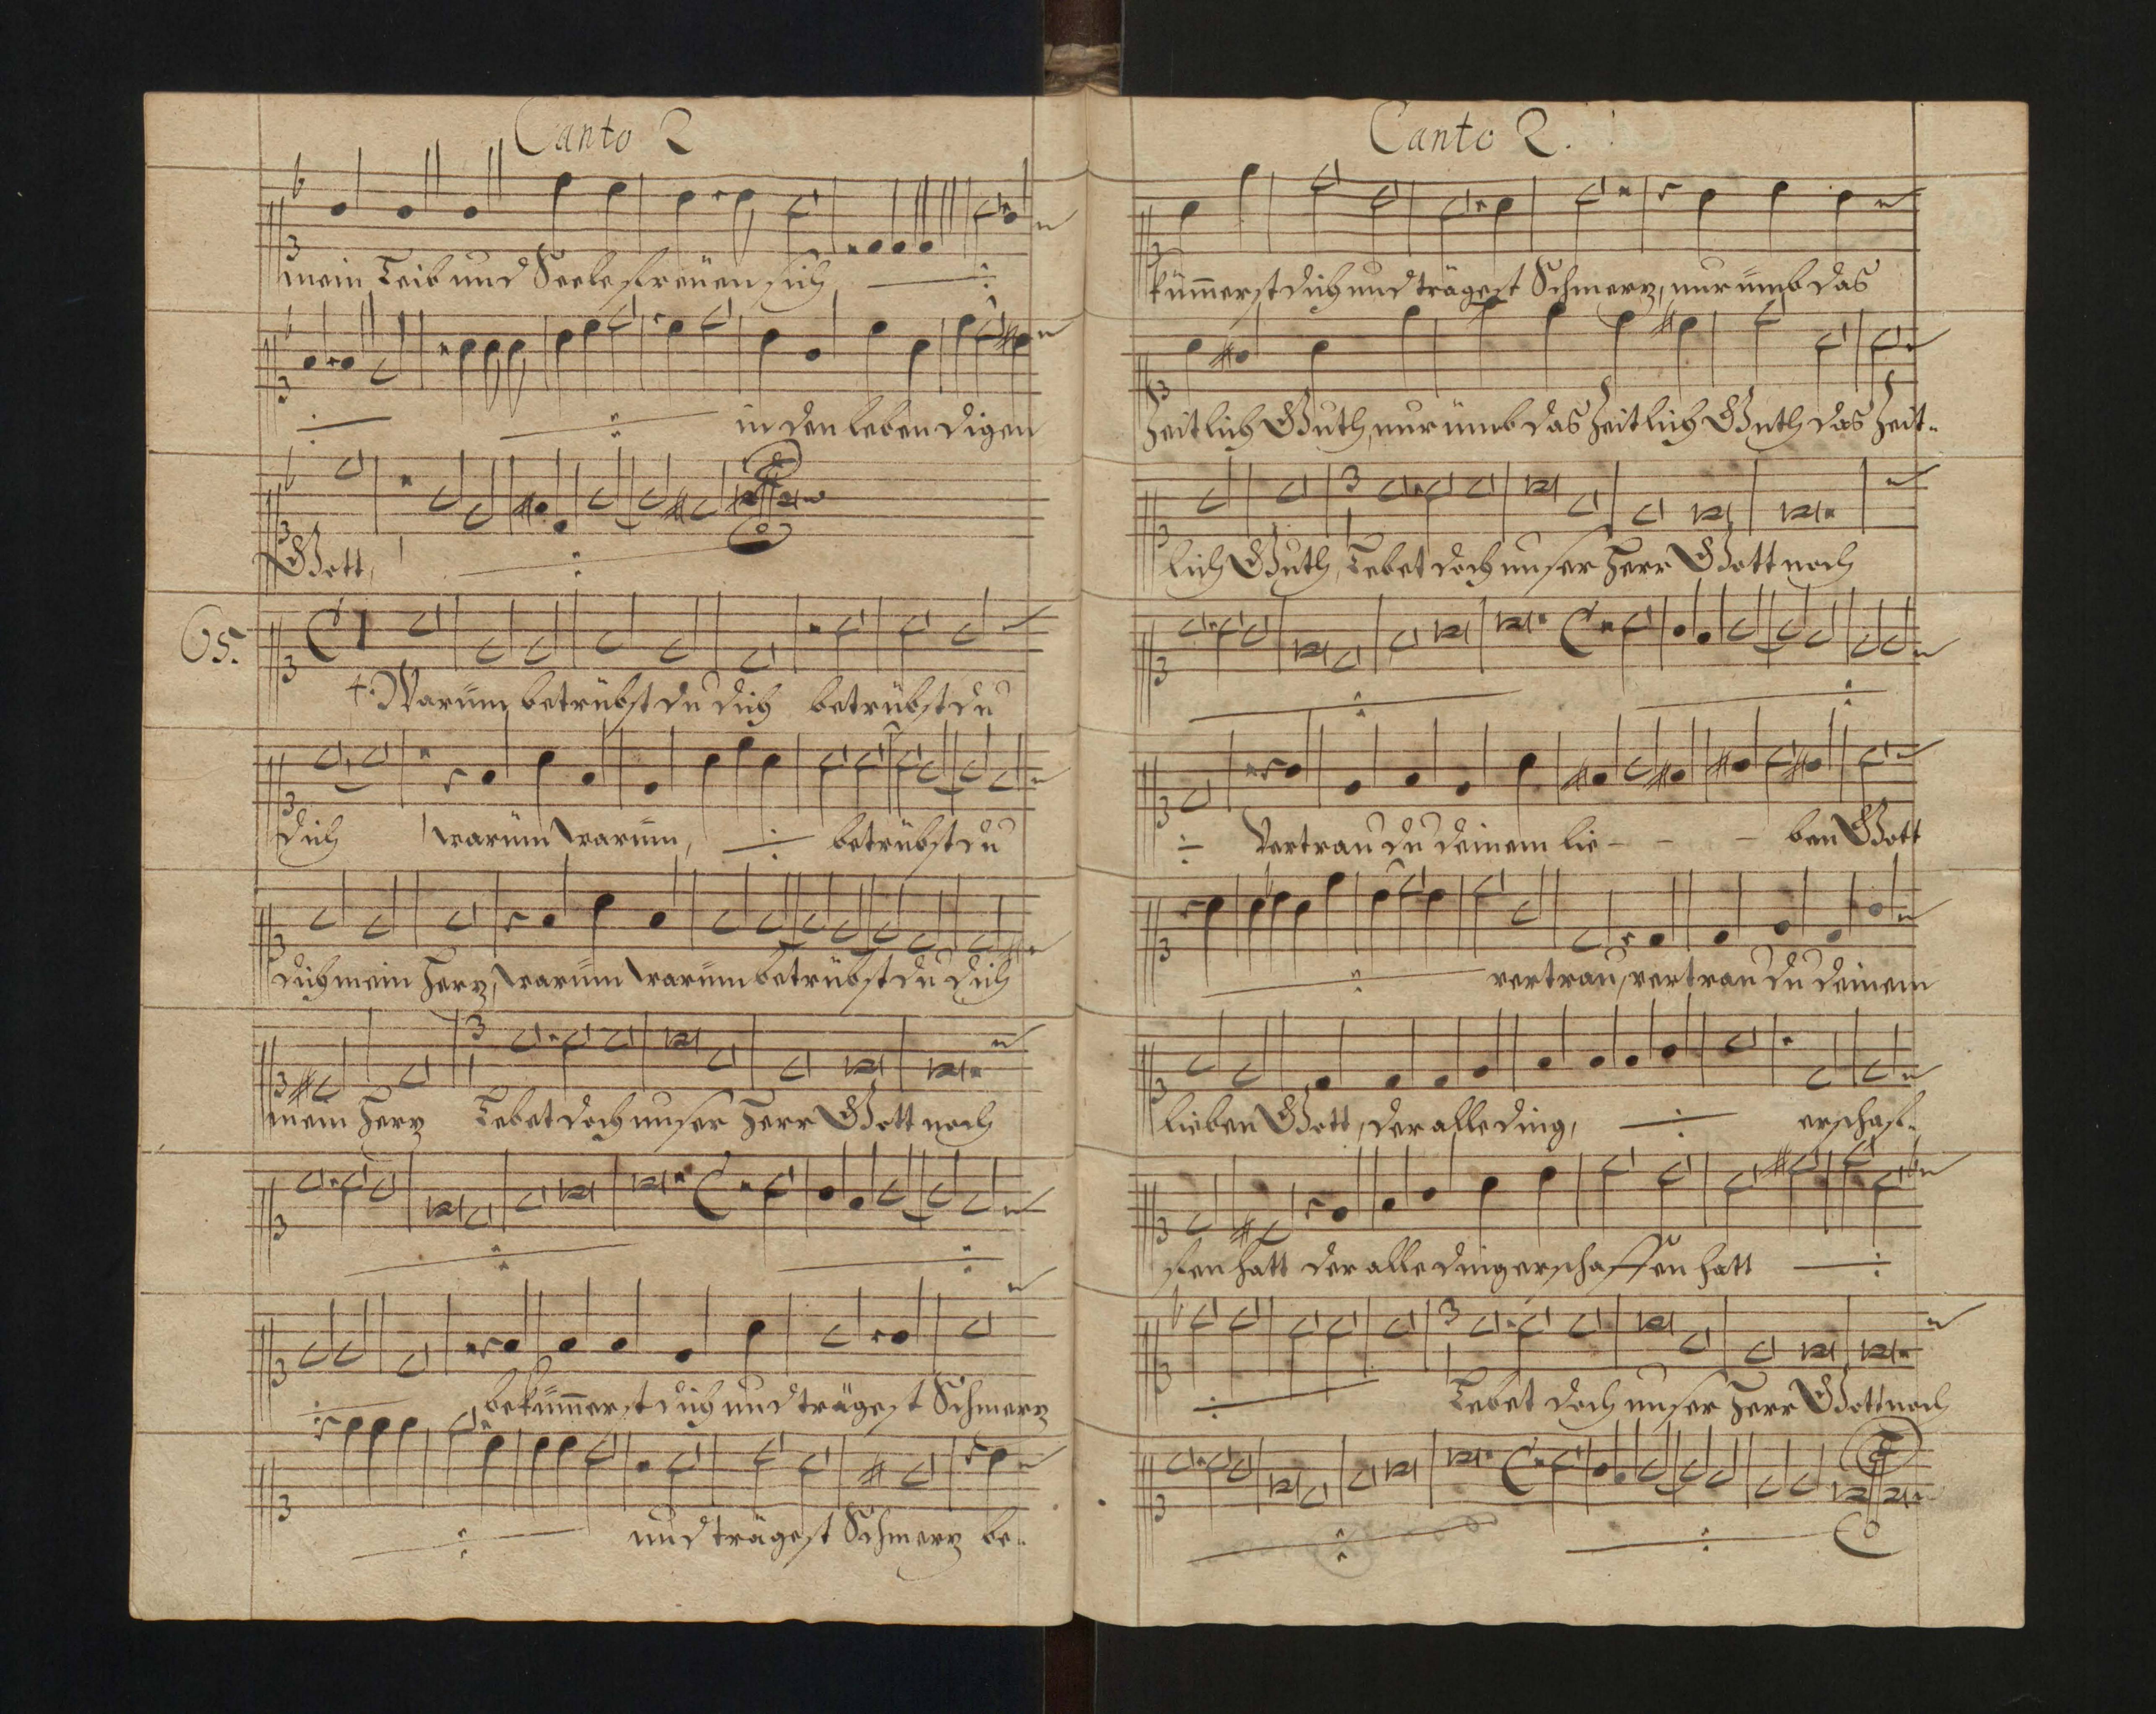 Canto 2
mein Leib und Seele freüen sich
in den lebendigen
Gott,
65.
Warüm betrübst du dich betrübst du
dich warüm warüm, betrübst du
dich mein Herz, warüm warüm betrübst du dich
mein Herz Lebet doch unser Herr Gott noch
bekümmerst dich und trägest Schmerz
und trägest Schmerz be-
Canto 2.
kümmerst dich und trägest Schmerz, nur ümb das
Zeitlich Guth, nur ümb das Zeitlich Guth das Zeit-
lich Guth, Lebet doch unser Herr Gott noch
Vertrau du deinem lie - - - ben Gott
vertrau, vertrau du deinem
lieben Gott, der alle ding, erschaf-
fen hatt der alle ding erschaffen hatt
Lebet doch unser Herr Gott noch